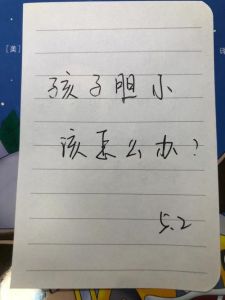 [美]
孩子胆小
该怎么办?
5.2